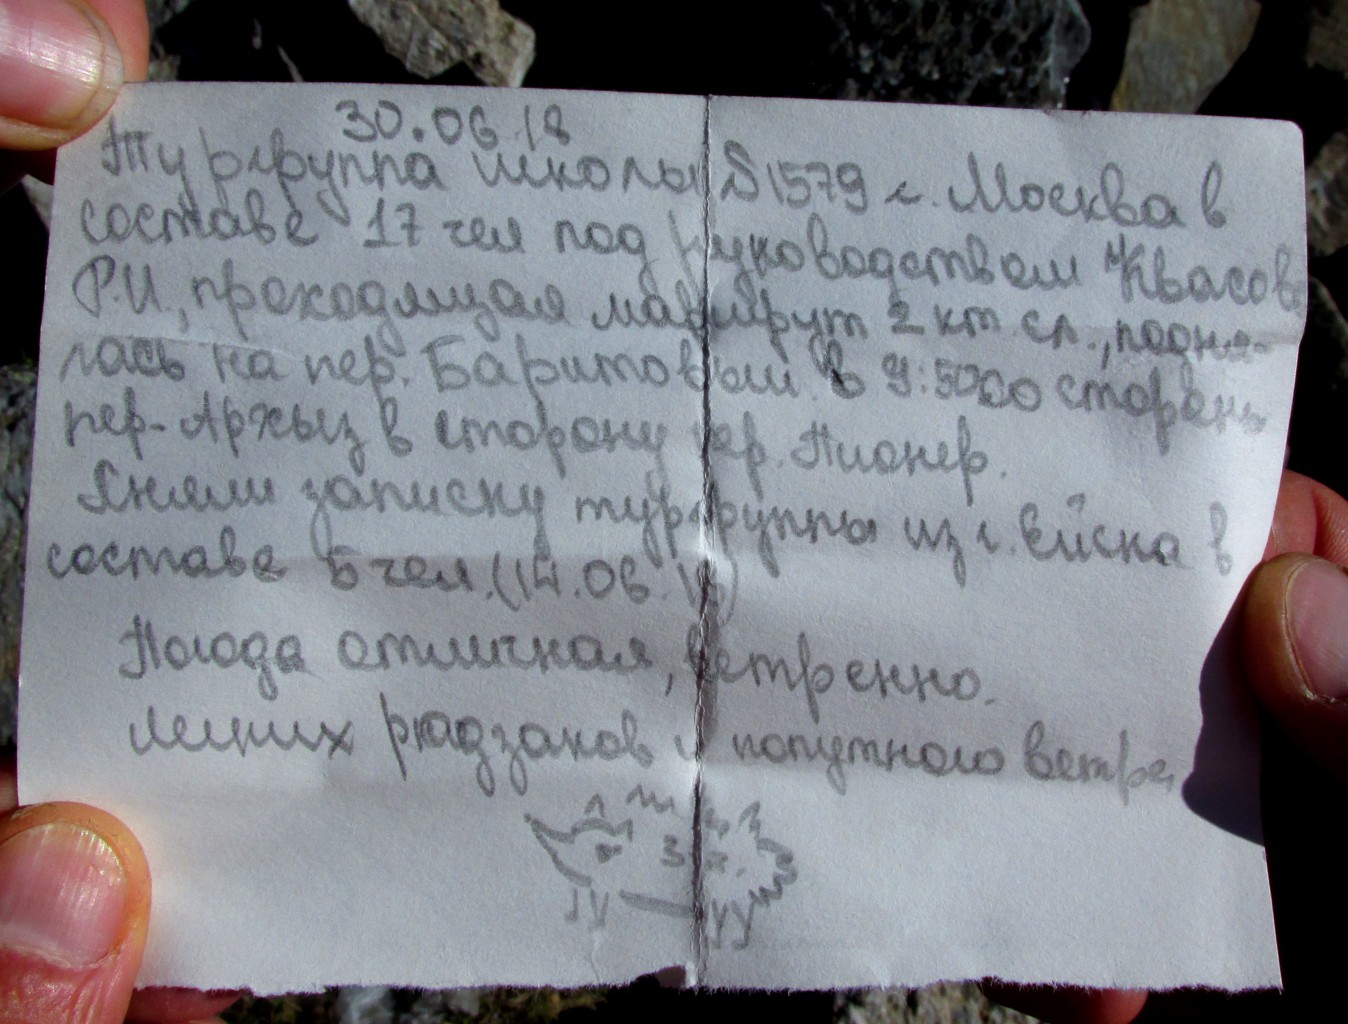 30.06.18
Тургруппа школы S1579 г. Москва в
составе 17 чел под руководством Квасов
Р.И, проходящая маршрут 2 кт. сл., подня-
лась на пер. Баритовый в 9:50 со стороны
пер. Архыз в сторону пер. Пионер.
Сняли записку тургруппы из г. Ейска в
составе 5 чел. (14.06.18)
Погода отличная, ветренно.
Легких рюдзаков и попутного ветра